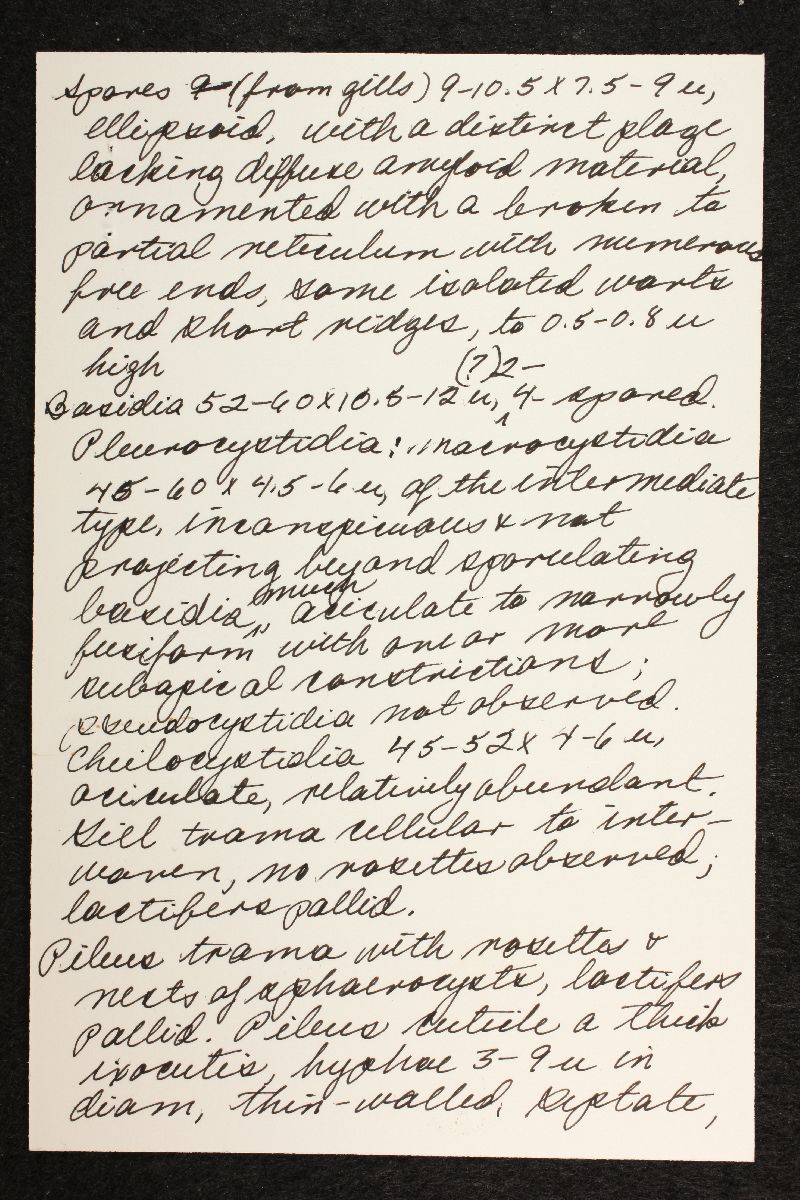 Spores 9- (from gills) 9-10.5 x 7.5-9 u,
ellipsoid, with a distinct plage
lacking diffuse amyloid material,
ornamented with a broken to
partial reticulum with numerous
free ends, some isolated warts
and short ridges, to 0.5-0.8 u
high
(?)2-
Basidia 52-60 x 10.5-12 u, 4- spored.
Pleurocystidia: macrocystidia
45-60 x 4.5-6 u, of the intermediate
type, inconspicuous & not
projecting beyond sporulating
much
basidia, aciculate to narrowly
fusiform with one or more
subapical constrictions;
pseudocystidia not observed.
Cheilocystidia 45-52 x 4-6 u,
aciculate, relatively abundant.
Gill trama cellular to inter-
woven, no rosettes observed;
lactifers pallid.
Pileus trama with rosettes &
nests of sphaerocysts, lactifers
pallid. Pileus cuticle a thick
ixocutis, hyphae 3-9 u in
diam, thin-walled, septate,